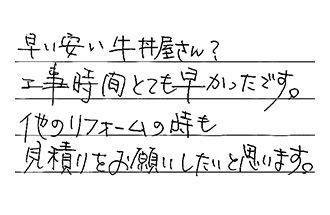 早い安い牛丼屋さん?
工事時間とても早かったです。
他のリフォームの時も
見積りをお願いしたいと思います。